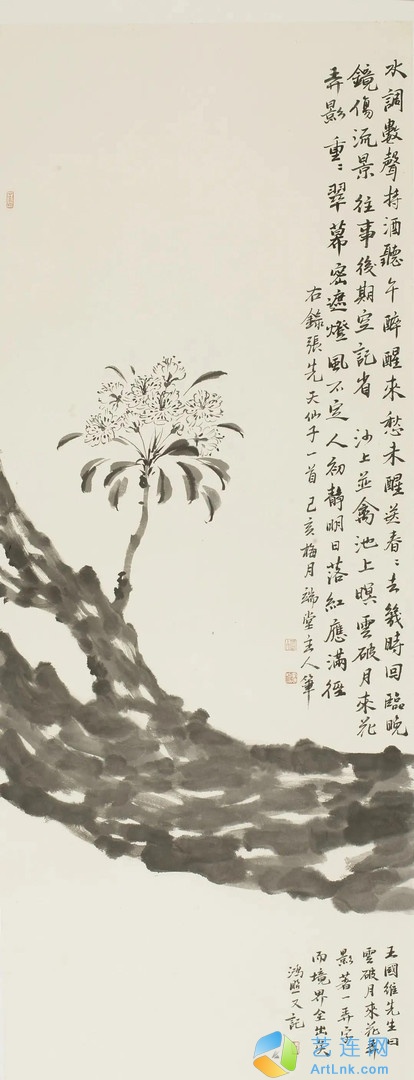 水調數聲持酒聽午醉醒來愁未醒送春〻去幾時回臨晚
鏡傷流景往事後期空記省沙上並禽池上暝雲破月來花
弄影重〻翠幕密遮燈風不定人初靜明日落紅應滿徑
右錄張先天仙子一首己亥梅月端堂主人筆
王國維先生曰
雲破月來花弄
影著一弄字
而境界全出矣
鴻照又記
艺连网
ArtLnk.com